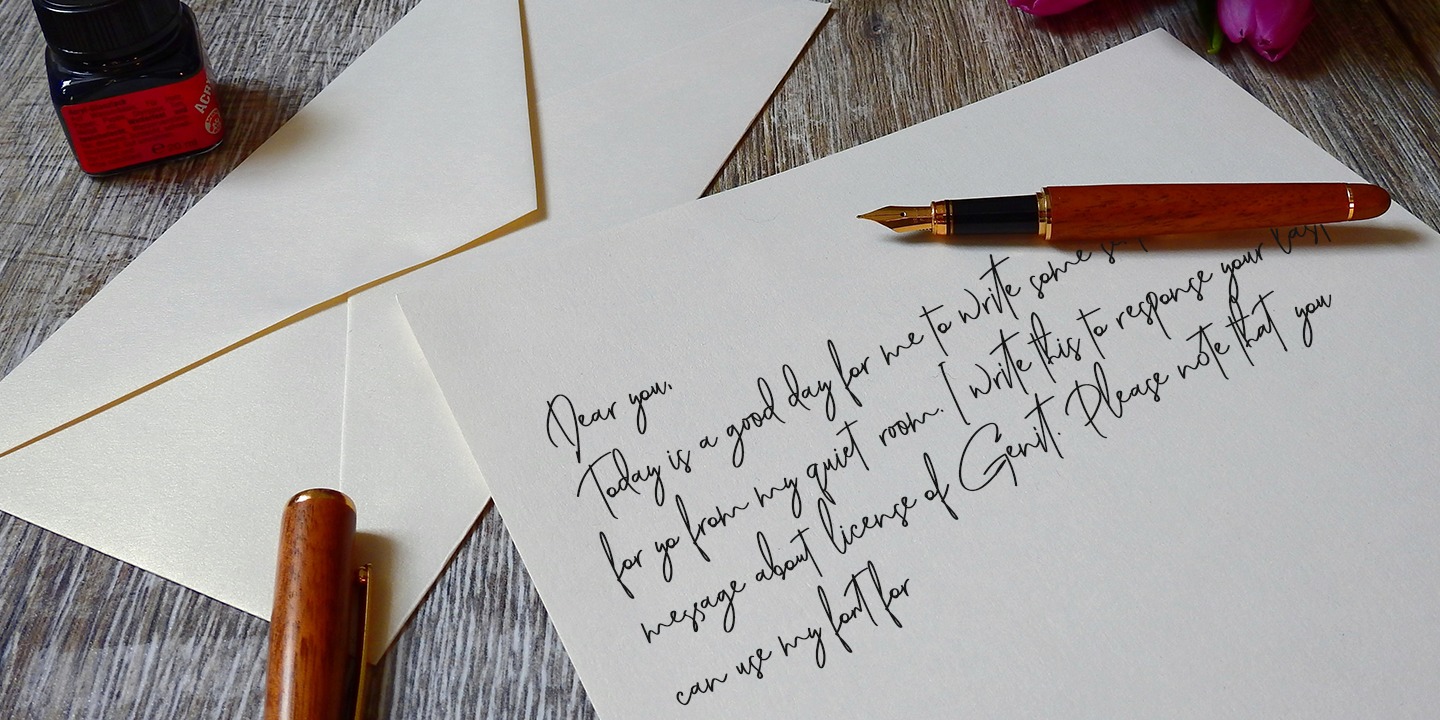 ACR
Dear you,
Today is a good day for me to write some
for yo from my quiet room. I write this to response your last
message about license of Genit. Please note that you
can use my font for